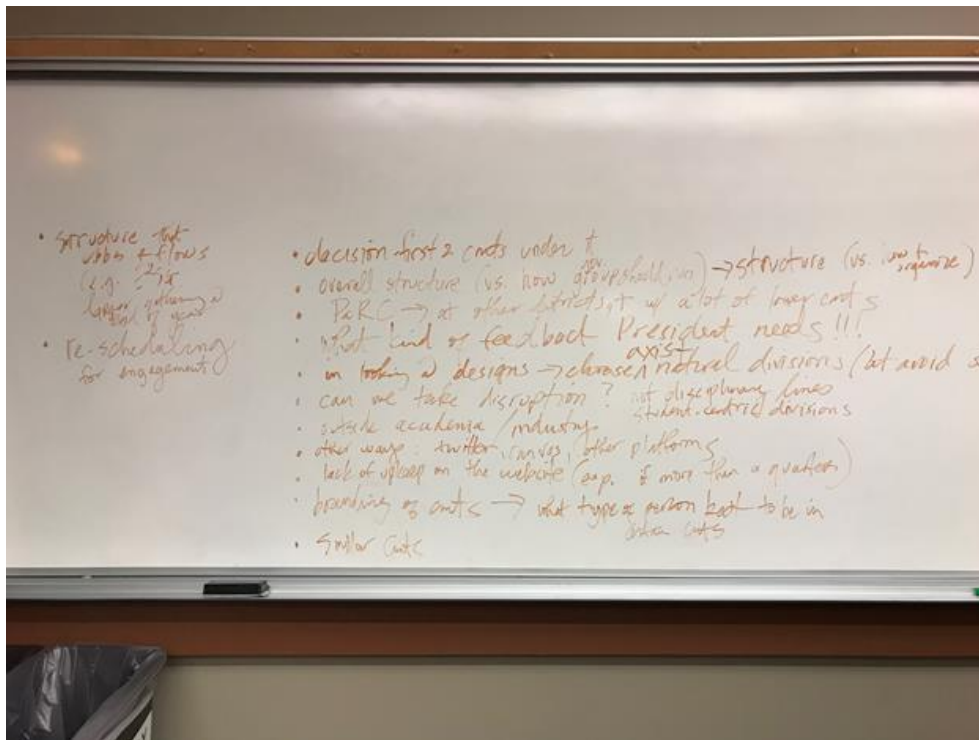 • structure that
ebbs + flows
(e.g.
larger gathering @
end of year
• re-scheduling
for engagement)
• decision first 2 cmts under it
• overall structure (vs. how group should run) → structure (vs. how to organize)
• PaRC → at other districts, w/ a lot of lower cmts
• what kind of feedback President needs !!!
• in looking @ designs → choose axis / natural divisions (but avoid s
• can we take disruption? not disciplinary lines
student-centric divisions
• outside academia / industry
• other ways: twitter, canvas, other platforms
• lack of upkeep on the website (esp. if more than a quarter)
• branding of cmts → what type of person best to be in
certain cmts
• smaller cmts